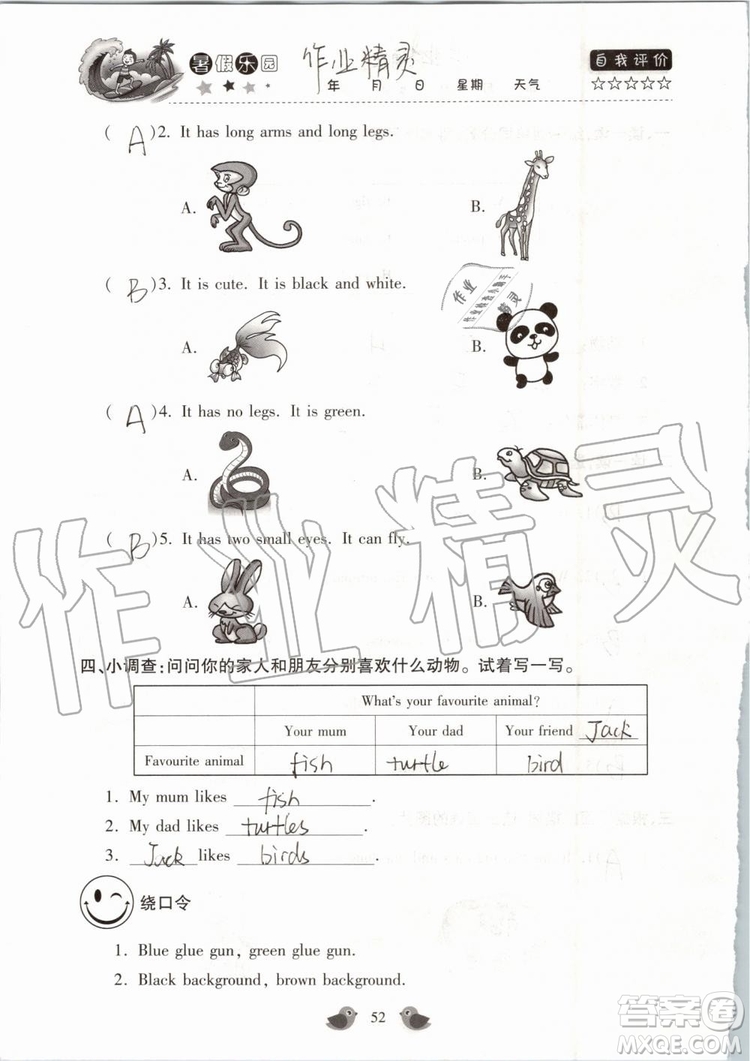 暑假乐园 作业精灵 自我评价
年 月 日 星期 天气 ☆☆☆☆☆
( A )2. It has long arms and long legs.
A. B.
( B )3. It is cute. It is black and white.
作业
精灵
A. B.
( A )4. It has no legs. It is green.
A. B.
作业精灵
( B )5. It has two small eyes. It can fly.
A. B.
四、小调查:问问你的家人和朋友分别喜欢什么动物。试着写一写。
What's your favourite animal?
Your mum Your dad Your friend Jack
Favourite animal fish turtle bird
1. My mum likes fish .
2. My dad likes turtles .
3. Jack likes birds .
绕口令
1. Blue glue gun, green glue gun.
2. Black background, brown background.
52
答案圈
MXQE.COM